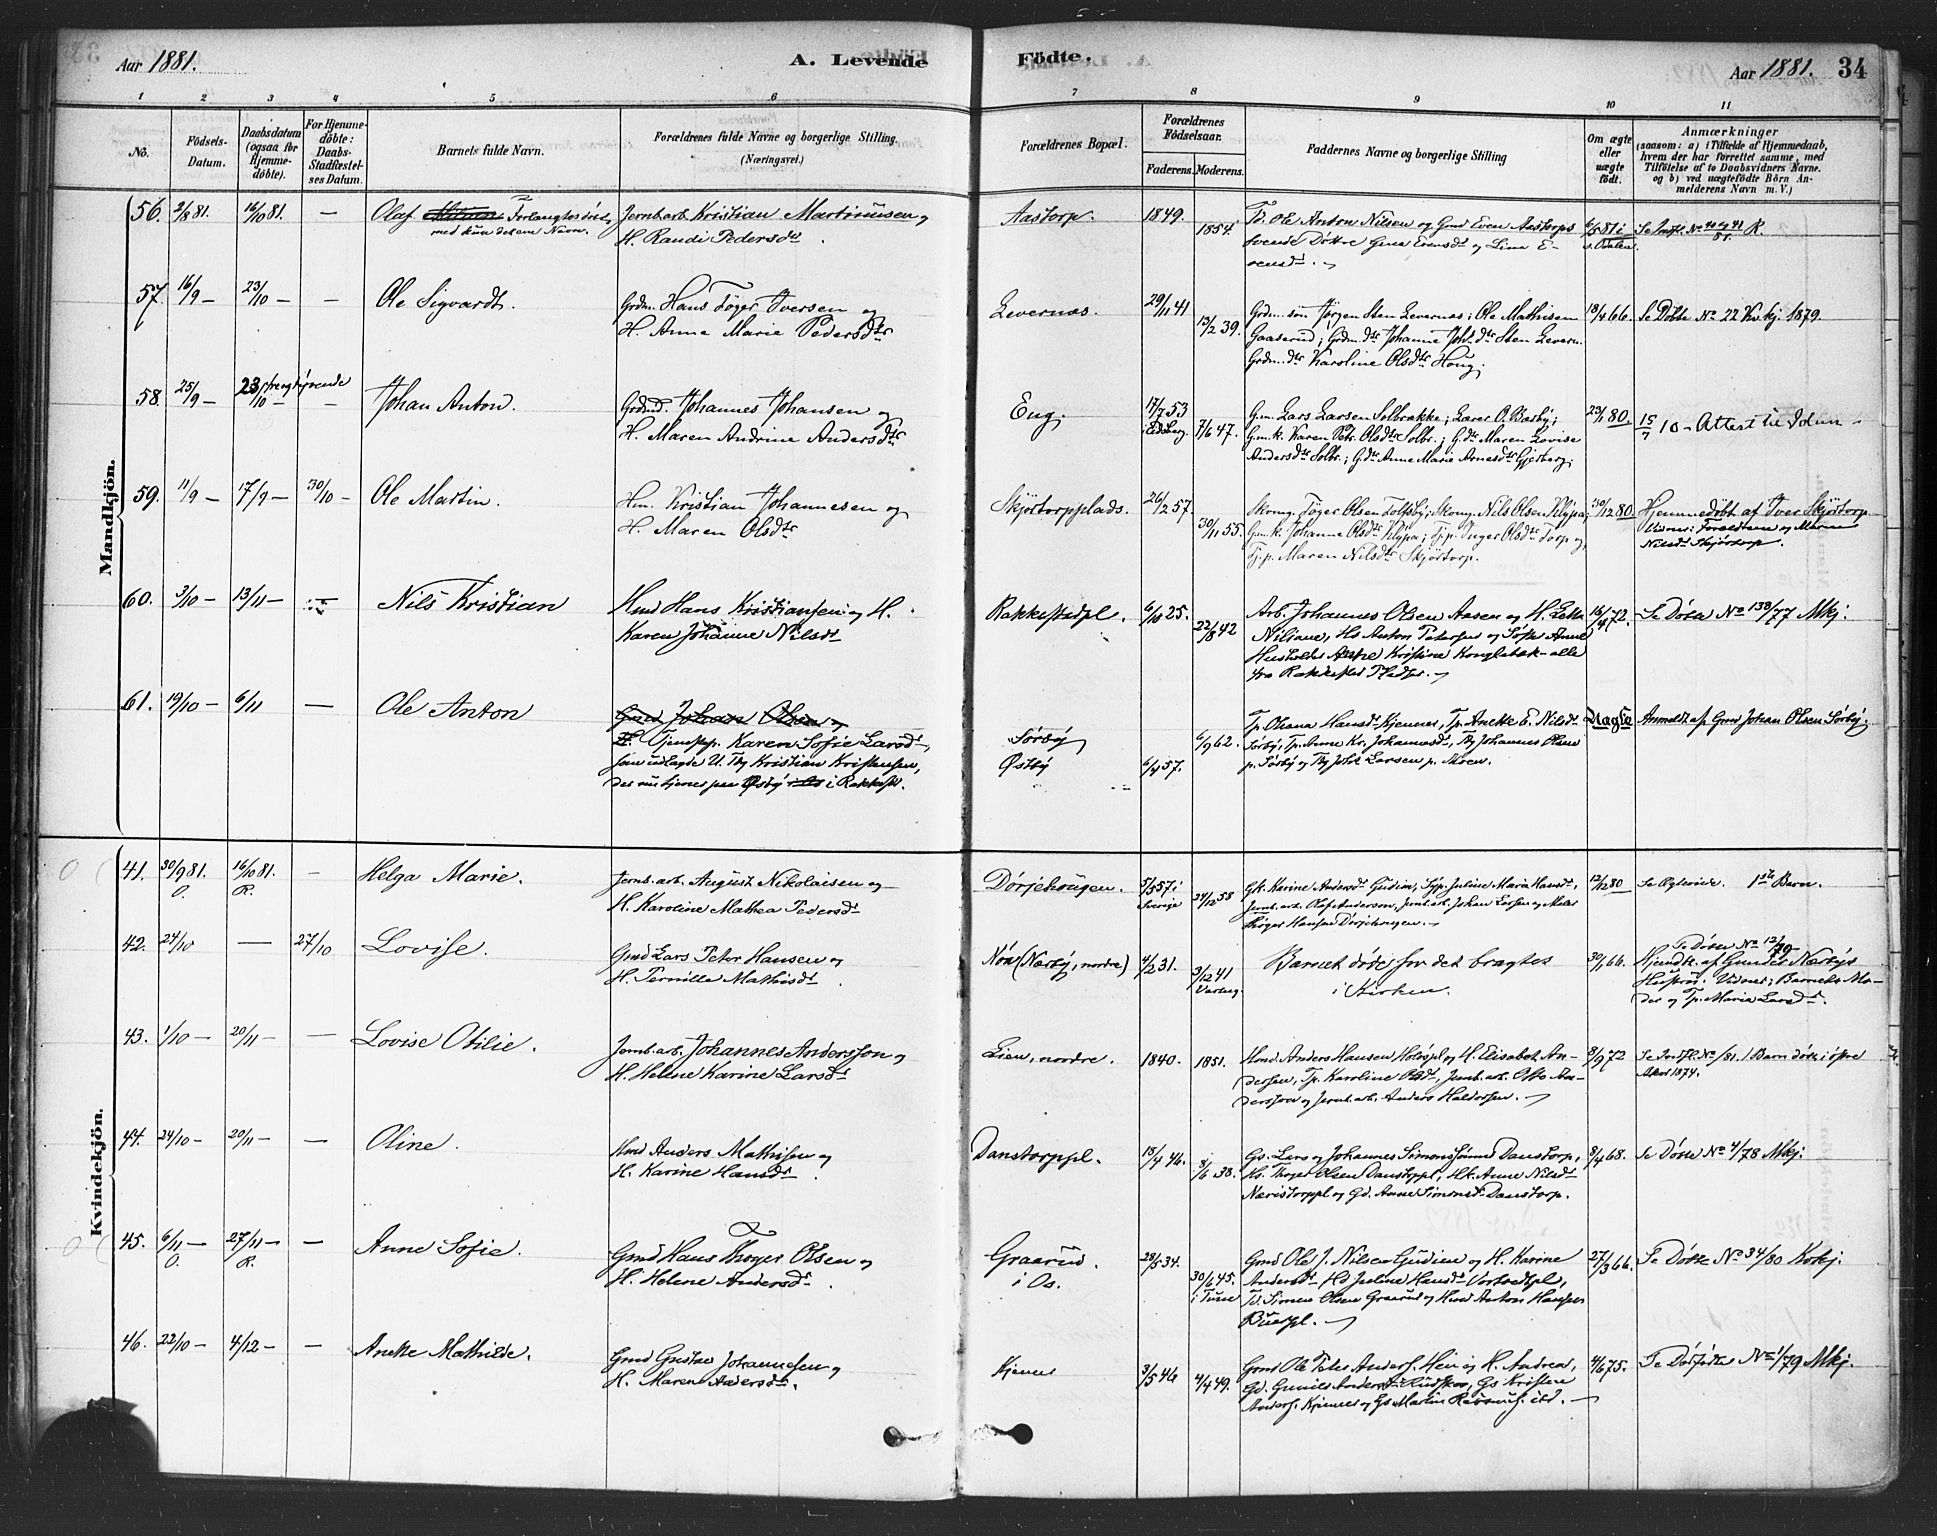 Aar 1881.
A. Levende
Födte.
Aar 1881. 34
1 2 3 4 5 6 7 8 9 10 11
No.
Födsels-Datum.
Daabsdatum (ogsaa for Hjemme-döbte).
For Hjemme-döbte: Daabs-Stadfæstel-ses Datum.
Barnets fulde Navn.
Forældrenes fulde Navne og borgerlige Stilling.
(Næringsvei.)
Forældrenes Bopæl.
Forældrenes Födselsaar.
Faderens. Moderens.
Faddernes Navne og borgerlige Stilling
Om ægte eller uægte födt.
Anmærkninger
(saasom: a) i Tilfælde af Hjemmedaab,
hvem der har forrettet samme, med
Tilföielse af to Daabsvidners Navne.
og b) ved uægtefödte Börn An-
melderens Navn m. V.)
Mandkjön.
56. 2/8 81. 16/10 81. — Olaf Forlangtes döbt
med kun det ene Navn.
Jernb.arb. Kristian Martinusen og
H. Randi Pedersdtr.
Aastorp. 1849. 1854.
Ole Anton Nilsen og Gmd Even Aastorps
Döttre Gina Evensdt og Lina E-
vensdt.
57. 16/9 — 23/10 — — Ole Sigvardt.
Grdm. Hans Töger Iversen og
H. Anne Marie Pedersdtr
Levernæs. 29/11 41 13/2 39.
Grdm. sön Jörgen Sten Levernæs; Ole Mathisen
Gaaserud; Grdm.dtr Johanne Johsdtr Sten Levern.
Grdm.dtr Karoline Olsdtr Houg.
18/4 66. Se Döbte No 22 Kv.kj. 1879.
58. 25/9 — 23/10 — — Johan Anton.
Grdmd. Johannes Johansen og
H. Maren Andrine Andersdtr
Eng. 17/7 53 i Eidsberg. 7/6 47.
Gm. Lars Larsen Solbrække; Lærer O. Barby;
Gm.k. Karen Petr. Olsdtr Solbr.; G.dtr Maren Lovise
Andersdtr Solbr.; Gdtr Anne Marie Arnesdtr Gjerberg.
80. 15/7 10 — Attest til Idun —
59. 11/9 — 17/9 — 30/10 — Ole Martin.
Hm. Kristian Johannesen og
H. Maren Olsdtr
Skjörtorpplads. 26/2 57. 30/11 55.
Skomg. Töger Olsen Toltsby; Skomg. Nils Olsen Klypa;
Gm.k. Johanne Olsdtr Klypa; Tj.p. Inger Olsdtr Torp og
Tj.p. Maren Nilsdtr Skjörtorp.
30/12 80 Hjemmedöbt af Iver Skjörtorp
Vidner: Forældrene og Maren
Nilsdt Skjörtorp.
60. 3/10 — 13/11 — — Nils Kristian
Hmd Hans Kristiansen og H.
Karen Johanne Nilsdt
Rakkestadpl. 6/10 25. 22/8 42
Arb. Johannes Olsen Aasen og H. Lette
Niliane, Hs Anton Petersen og Anne
Husholder Anne Kristine Konglebæk — alle
fra Rakkestad Pladser.
72. Se Döbte No 138/77 Mkj:
61. 19/10 — 6/11 — Ole Anton
Gmd Johan Olsen og
H. Tjenestep. Karen Sofie Larsdt,
som udlagte U. Tky Kristian Kristensen,
der nu tjener paa Østby i Rakkest.
Sörby
Østby
6/9 62. 6/4 57.
Tp. Oliana Hansdt Kjennes, Tp. Anette E. Nilsdt
Sörby, Tp. Anne Kr. Johannesdt, Tky Johannes Olsen
p. Sörby og Tky Johs Larsen p. Moen.
Uægte Anmeldt af Gmd Johan Olsen Sörby.
Kvindekjön.
41. 30/9 81. 16/10 81. — Helga Marie.
O. R.
Jernb.arb. August Nikolaisen og
H. Karoline Mathea Pedersdt
Dörjehougen. 5/5 57 i Sverige 24/12 58
Gk. Karine Andersdt Gudim, Juline Maria Hansdt,
Jernb.arb. Olaf Anderson, Jernb.arb. Johan Larsen og
Thöger Hansen Dörjehougen.
12/12 80 1ste Barn.
42. 24/10 — 27/10 Lovise.
Gmd Lars Peter Hansen og
H. Pernille Mathisdt
Nön (Nærby, nordre) 4/2 31. 3/12 41
Barnet döde för det bragtes
i Kirken.
30/1 66. Se Döbte No 12/79
Hjmdbt. af Gunder Nærbys
Hustru. Vidner: Barnets Mo-
der og Tp. Maria Larsdt.
43. 1/10 — 20/11 — — Lovise Otilie.
Jernb.arb. Johannes Andersson og
H. Helene Karine Larsdt
Lien, nordre. 1840. 1851.
Hmd Anders Hansen og H. Elisabet An-
dersson, Tp. Karoline Olsdt, Jernb.arb. Otto An-
dersson og Jernb.arb. Anders Haldorsen. —
8/9 72 1 Barn döbt i övre
1874.
44. 24/10 — 20/11 — — Oline.
Hmd Anders Mathisen og
H. Karine Hansdt
Danstorppl. 13/4 46. 8/6 38.
Gs. Lars og Johannes Simonssönner Danstorp,
Hs. Thöger Olsen Danstorppl, Hk. Anne Nilsdt
Næristorppl og Gd. Anne Simonsdt Danstorp.
8/4 68. Se Döbte No 4/78 Mkj:
45. 6/11 — 27/11 — — Anne Sofie.
O. R.
Gmd Hans Thöger Olsen og
H. Helene Andersdt
Graarud
i Os.
28/5 34. 30/6 45. i Tune
Gmd Ole J. Nilsen Gudim og H. Karine
Andersdt, Hd Juline Hansdt
Simen Olsen Graarud og Hmd Anton Hansen
Buerpl.
27/3 66. Se Döbte No 34/80 Kvkj.
46. 22/10 — 4/12 — — Anette Mathilde.
Gmd Gustav Johannesen og
H. Maren Andersdt.
Kjennes 3/5 46 4/4 49.
Gmd Ole Peter Anders. Hein og H. Andrea,
Gd. Gunild Andersdt Rudskov, Gs Kristen
Anders. Kjennes og Gs Martin Rasmus. ibd. —
4/6 75. Se No 1/79 Mkj.